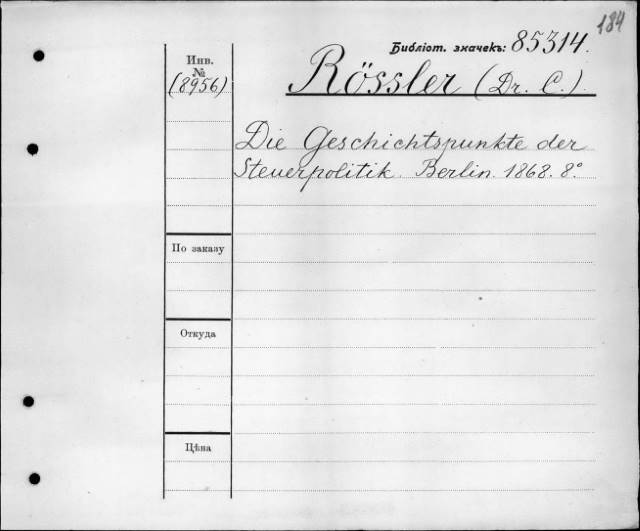 184
Библіот. значекъ: 85314.
Инв.
№
(8956)
Rössler (Dr. C.)
Die Geschichtspunkte der
Steuerpolitik. Berlin. 1868. 8°
По заказу
Откуда
Цѣна